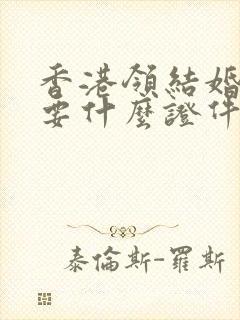 香港領結婚
要什麼證件
泰倫斯-羅斯